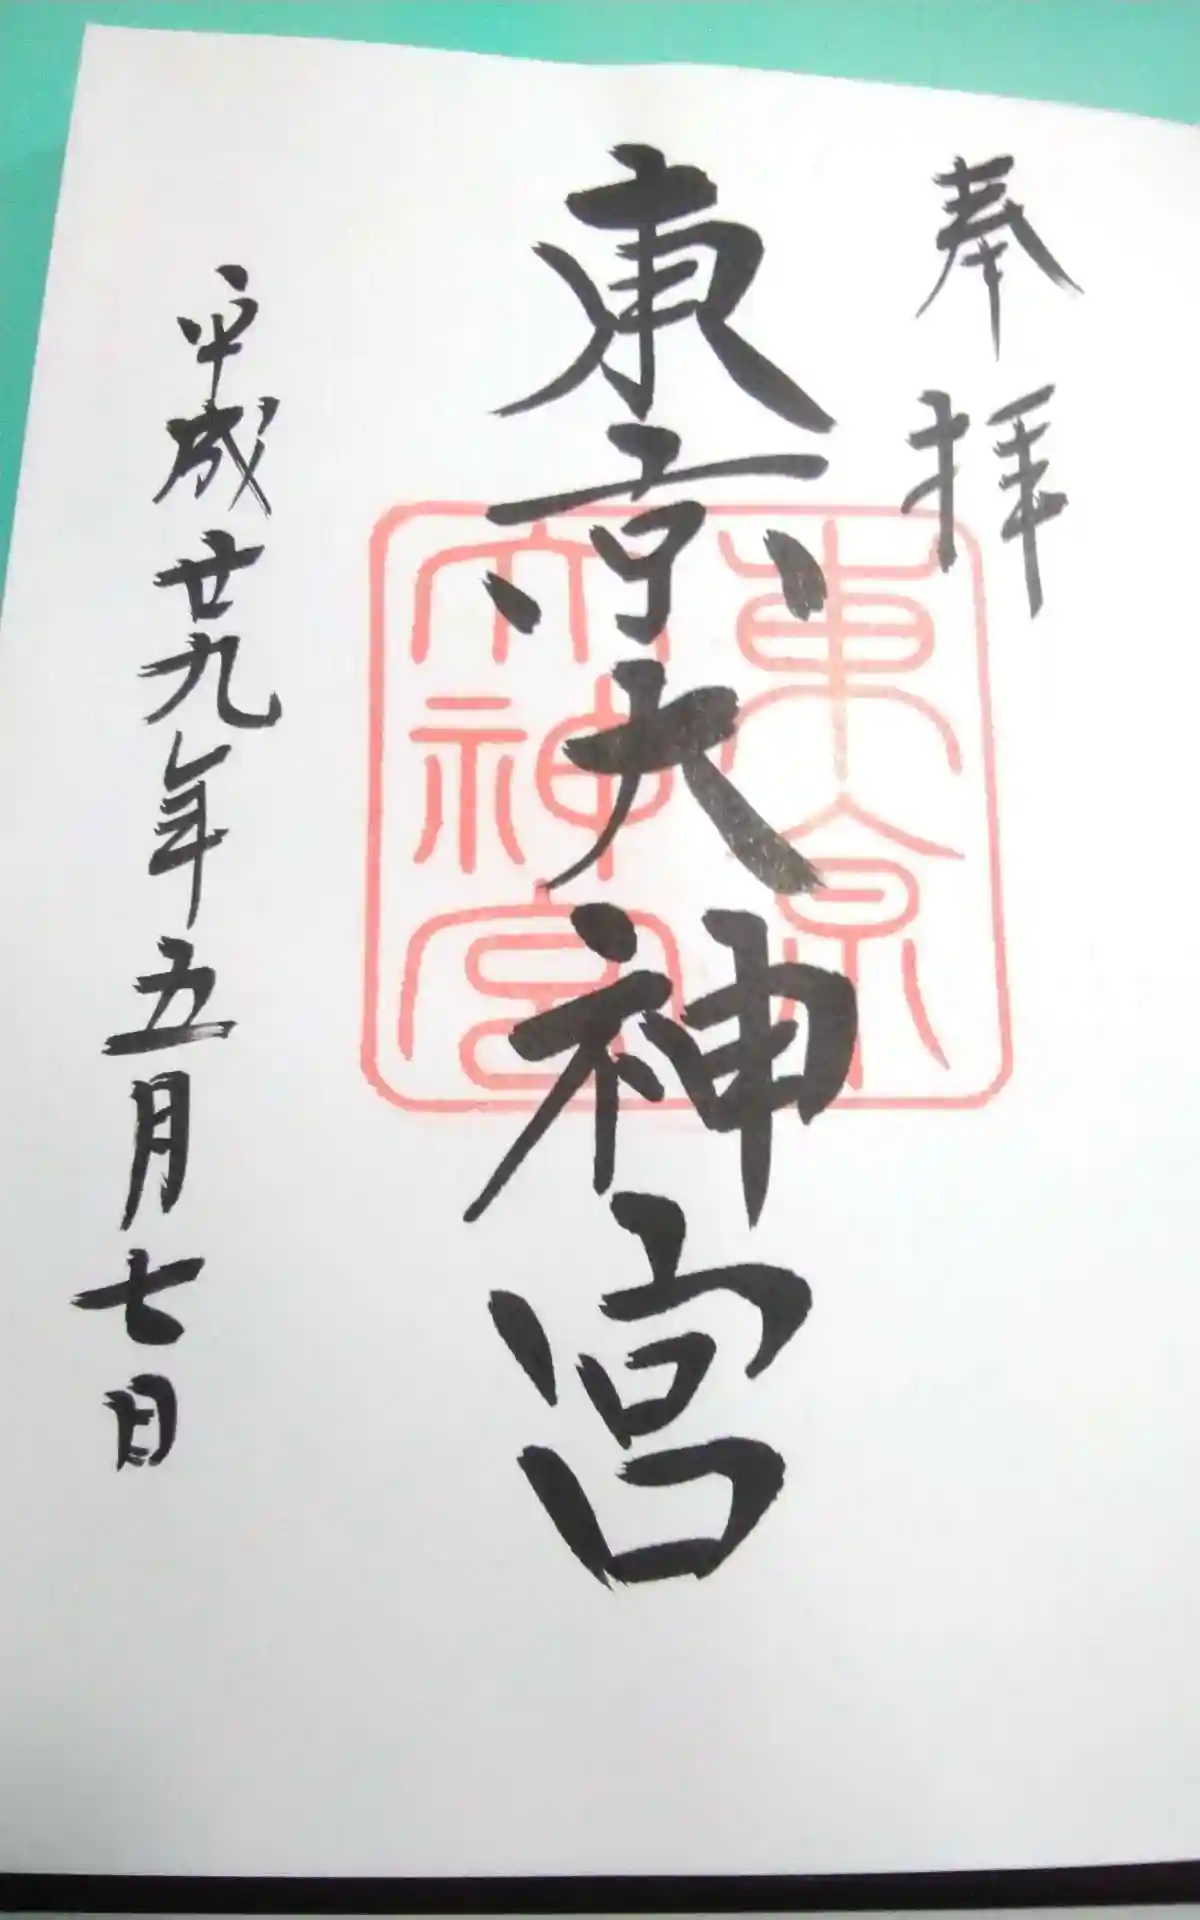 奉拝
東京大神宮
東京
大神宮
平成廿九年五月七日